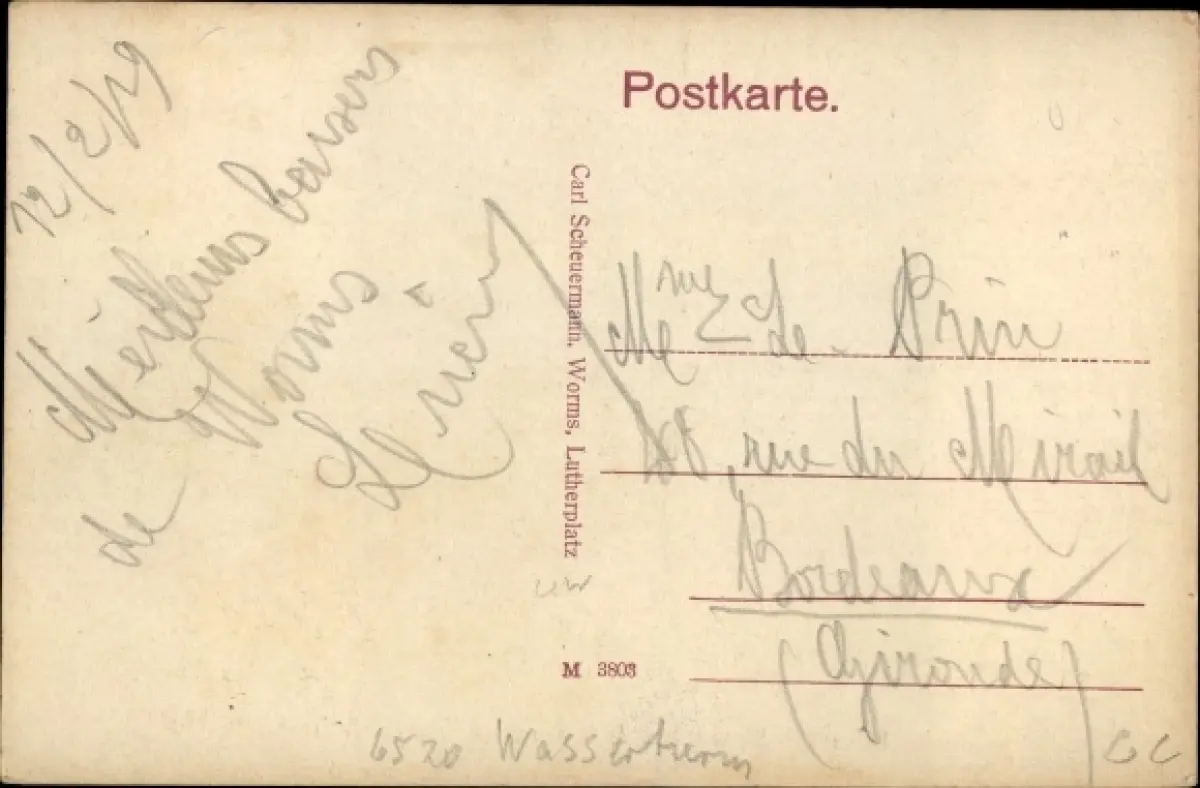 Postkarte.
12/2/19
Meilleurs baisers
de Worms
Lucien
Carl Scheuermann, Worms, Lutherplatz
Mme de Prin
rue du Mirail
Bordeaux
(Gironde)
M 3803
6520 Wasserturm